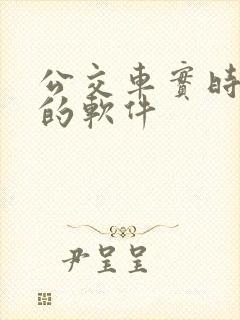 公交車實時
的軟件
尹呈呈